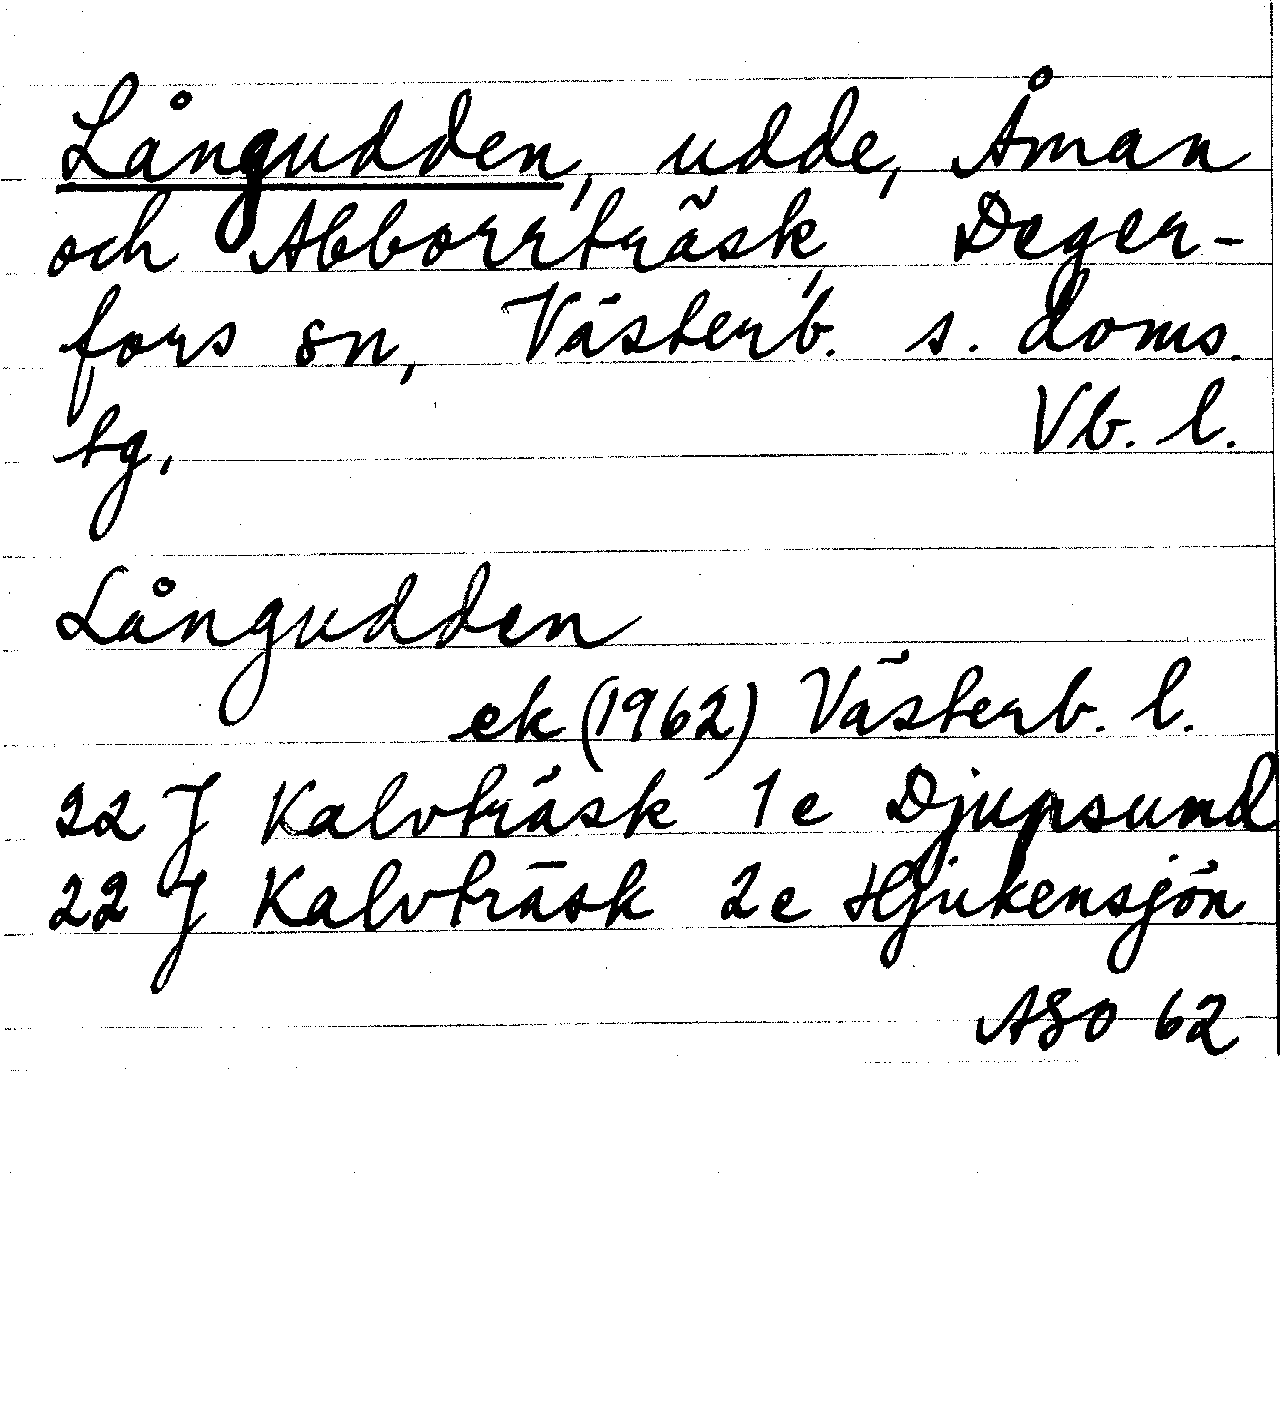 Långudden, udde, Åman
och Abborrträsk, Deger-
fors sn, Västerb. s. doms.
tg,
Vb. l.
Långudden
ek (1962) Västerb. l.
22 J Kalvträsk 1e Djupsund
22 J Kalvträsk 2e Hjukensjön
ASO 62